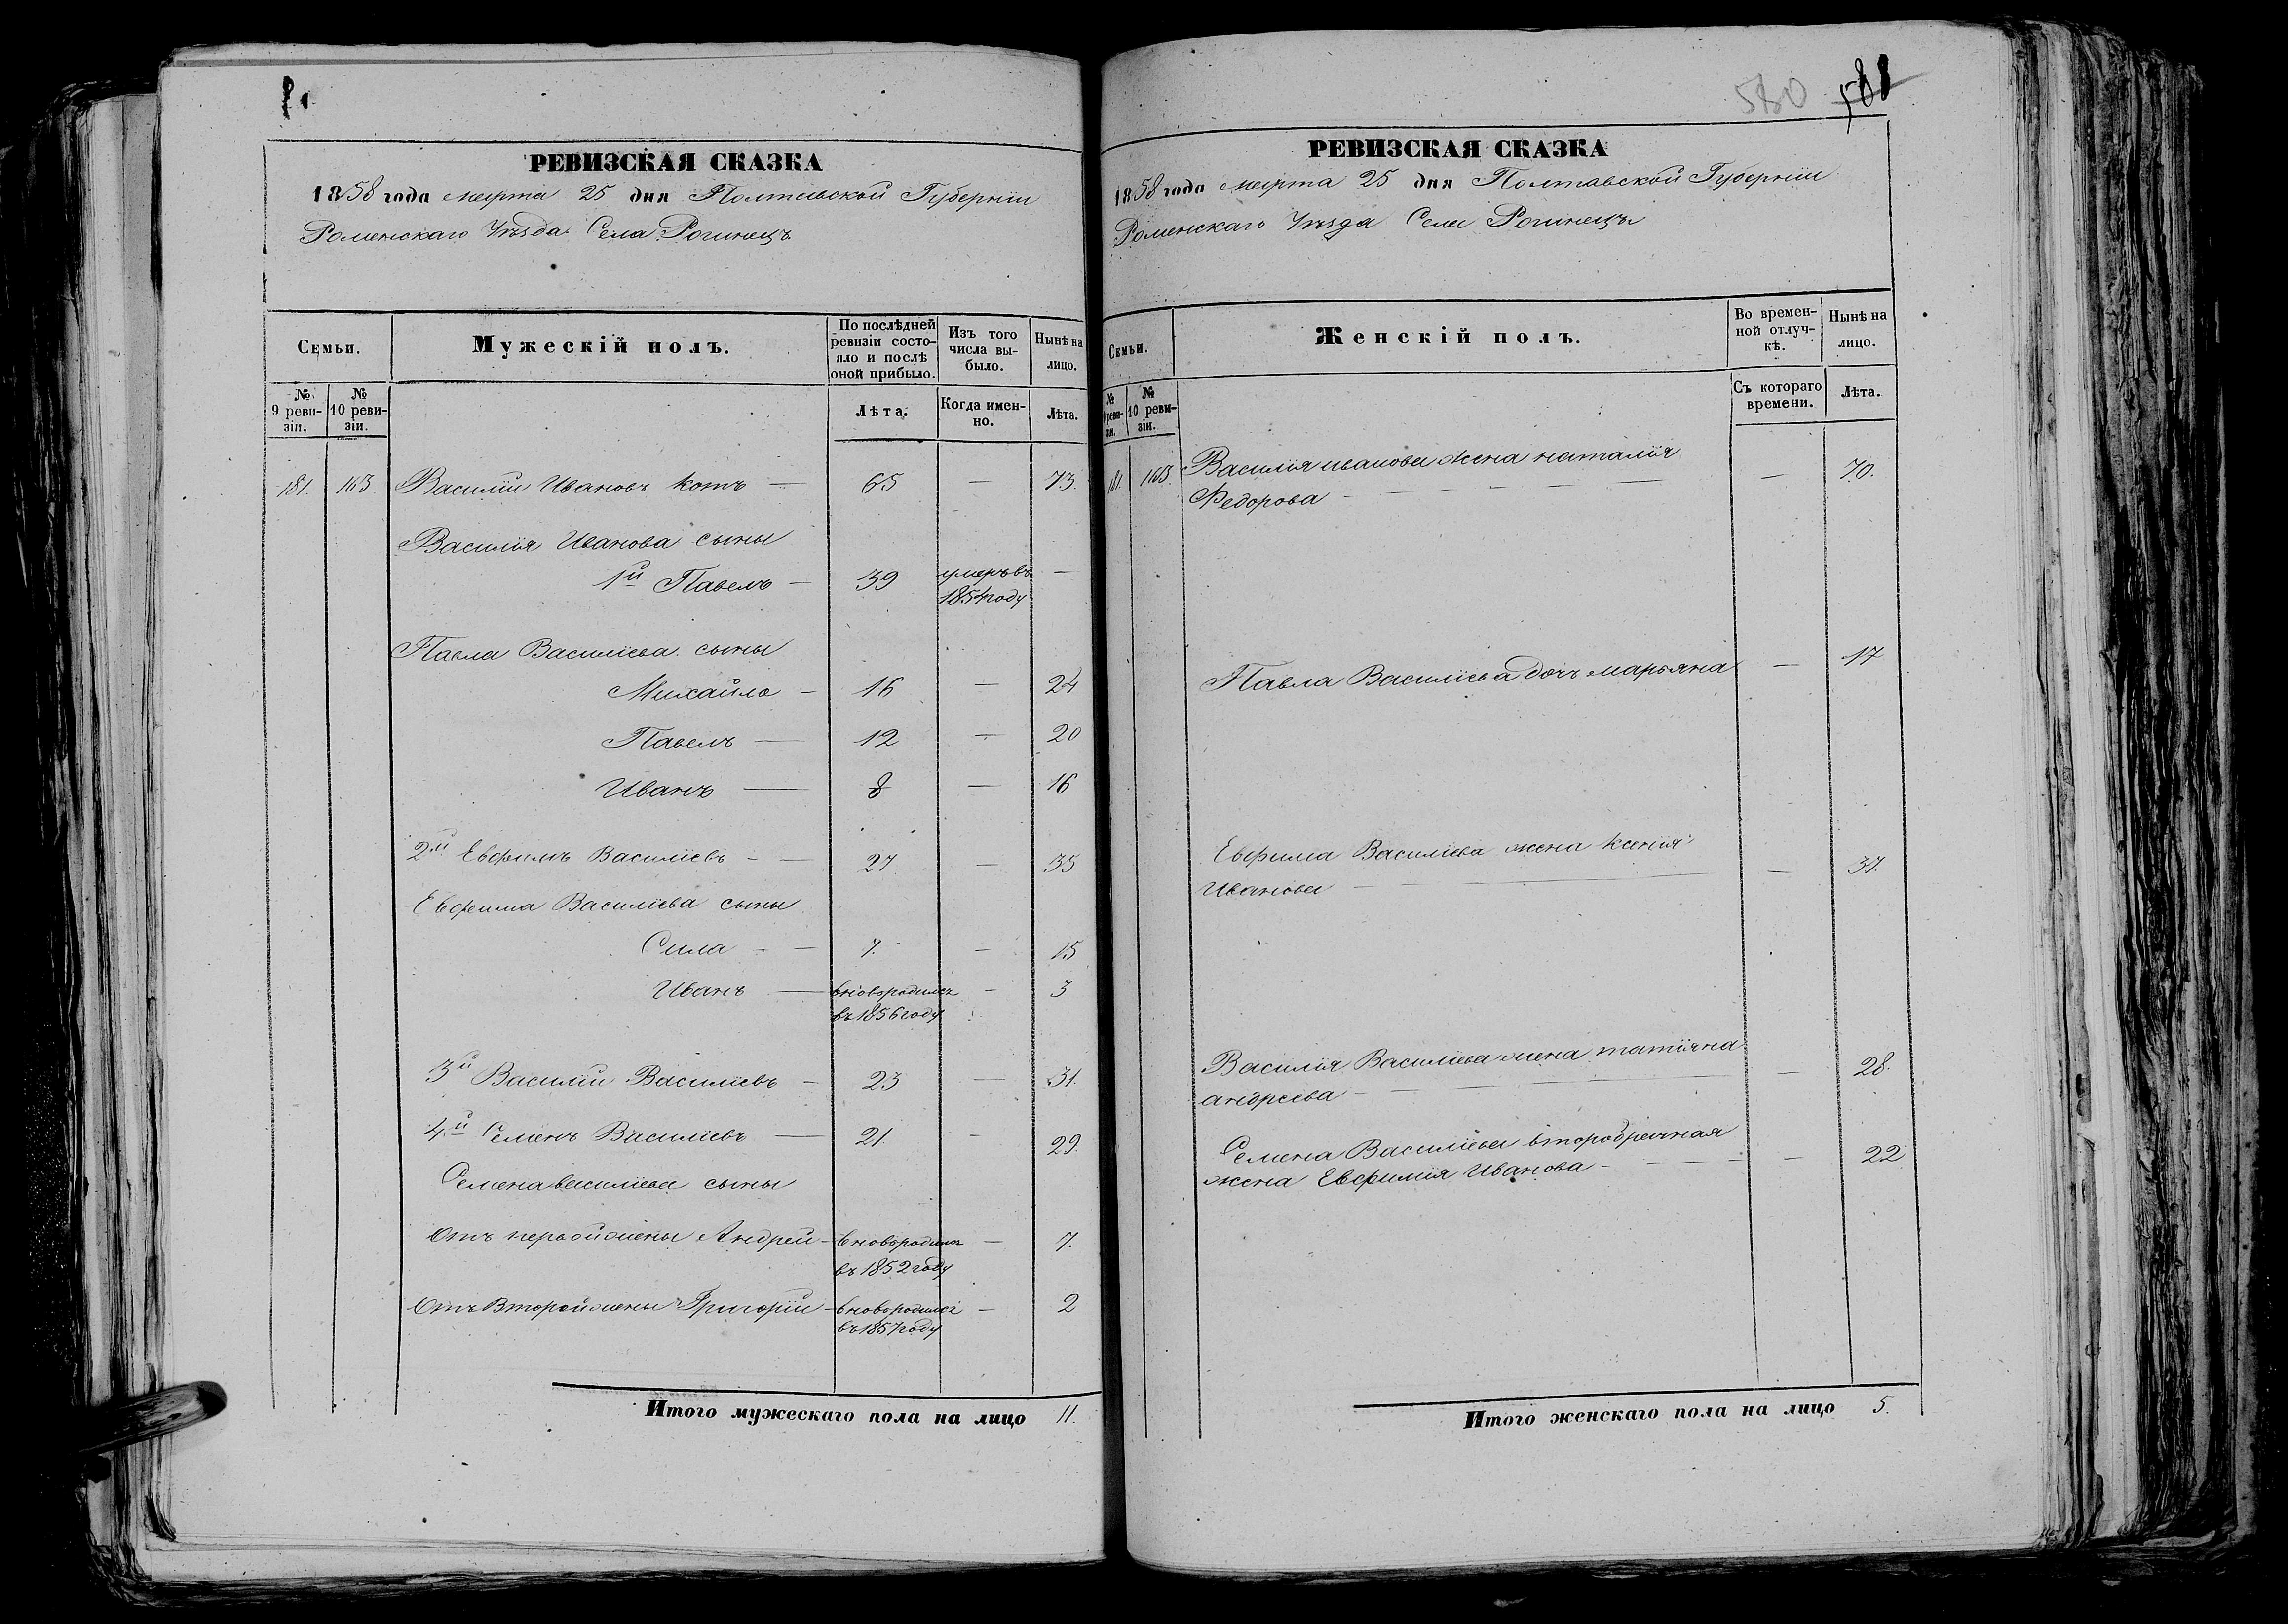 РЕВИЗСКАЯ СКАЗКА
1858 года марта 25 дня Полтавской Губерніи
Роменскаго Уѣзда Села Рогинецъ
Семьи.
Мужескій полъ.
По послѣдней ревизіи состояло и послѣ оной прибыло.
Изъ того числа выбыло.
Нынѣ на лицо.
№ 9 ревизіи.
№ 10 ревизіи.
Лѣта.
Когда именно.
Лѣта.
181. 163. Василій Ивановъ Котъ — 65 — 73.
Василія Иванова сыны
1й Павелъ — 39 умеръ въ 1854 году —
Павла Василіева сыны
Михайло — 16 — 24
Павелъ — 12 — 20
Иванъ — 8 — 16
2й Евфимъ Василіевъ — 27 — 35
Евфима Василіева сыны
Сила — 7. — 15
Иванъ — вновородился въ 1856 году — 3
3й Василій Василіевъ — 23 — 31.
4й Семенъ Василіевъ — 21. — 29.
Семена василіева сыны
Отъ первой жены Андрей — вновородился въ 1852 году — 7.
Отъ Второй жены Григорій — вновородился въ 1857 году — 2
Итого мужескаго пола на лицо 11.
580 581
РЕВИЗСКАЯ СКАЗКА
1858 года марта 25 дня Полтавской Губерніи
Роменскаго Уѣзда Села Рогинецъ
Семьи.
Женскій полъ.
Во временной отлучкѣ.
Нынѣ на лицо.
№ 9 ревизіи.
№ 10 ревизіи.
Съ котораго времени.
Лѣта.
181. 163. Василія иванова жена наталія
Федорова — — 70.
Павла Василіева дочь марьяна — 17
Евфима Василіева жена ксенія
Иванова — — 37.
Василія Василіева жена татіяна
андреева — — 28.
Семена Василіева второбрачная
жена Евфимія Иванова — — 22
Итого женскаго пола на лицо 5.